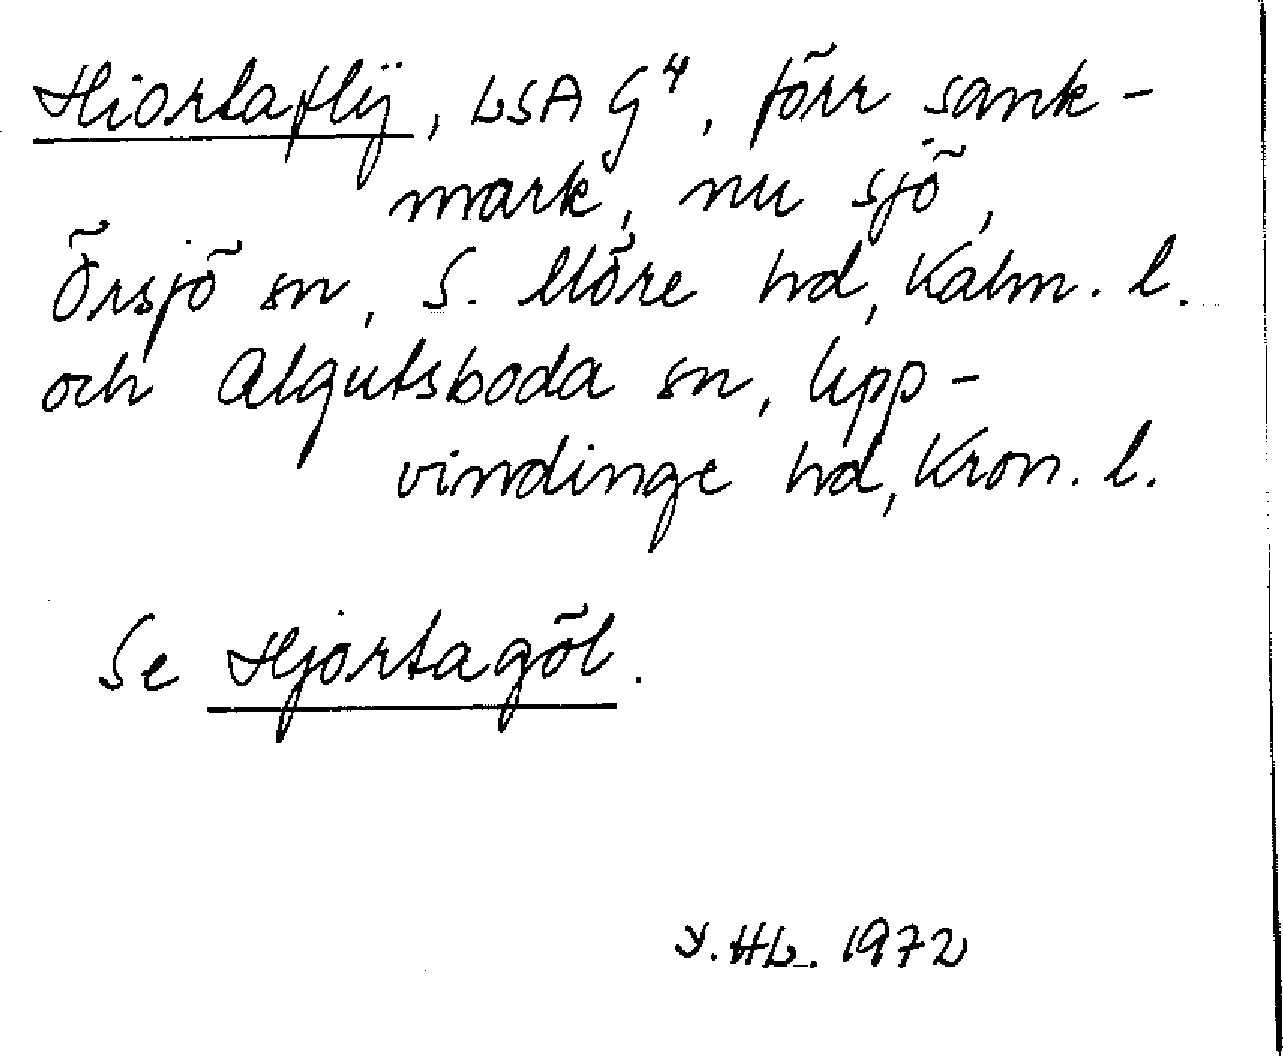 Hiortaflÿ, LSA G⁴, förr sank-
mark, nu sjö,
Örsjö sn, S. Möre hd, Kalm. l.
och Algutsboda sn, Upp-
vindinge hd, Kron. l.
Se Hjortagöl.
Y. HL. 1972